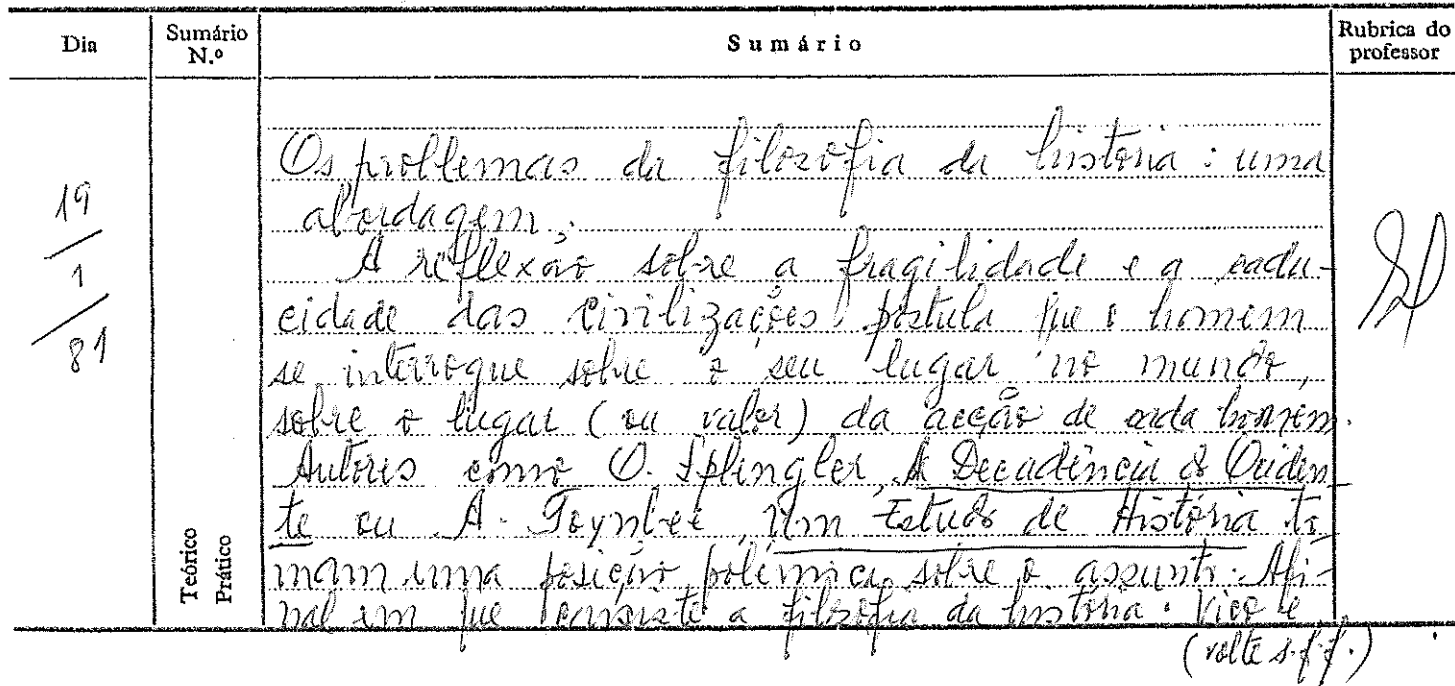 Dia
Sumário N.º
Sumário
Rubrica do professor
19
1
81
Os problemas da filosofia da história: uma
abordagem.
A reflexão sobre a fragilidade e a cadu-
cidade das civilizações postula que o homem
se interrogue sobre o seu lugar no mundo,
sobre o lugar (ou valor) da acção de cada homem.
Autores como O. Splengler, A Decadência do Ociden
te ou A. Toynbee, Um Estudo de História to
mam uma posição polémica sobre o assunto. Afi-
nal em que consiste a filosofia da história. Vico e
(volte s.f.f.)
Teórico
Prático